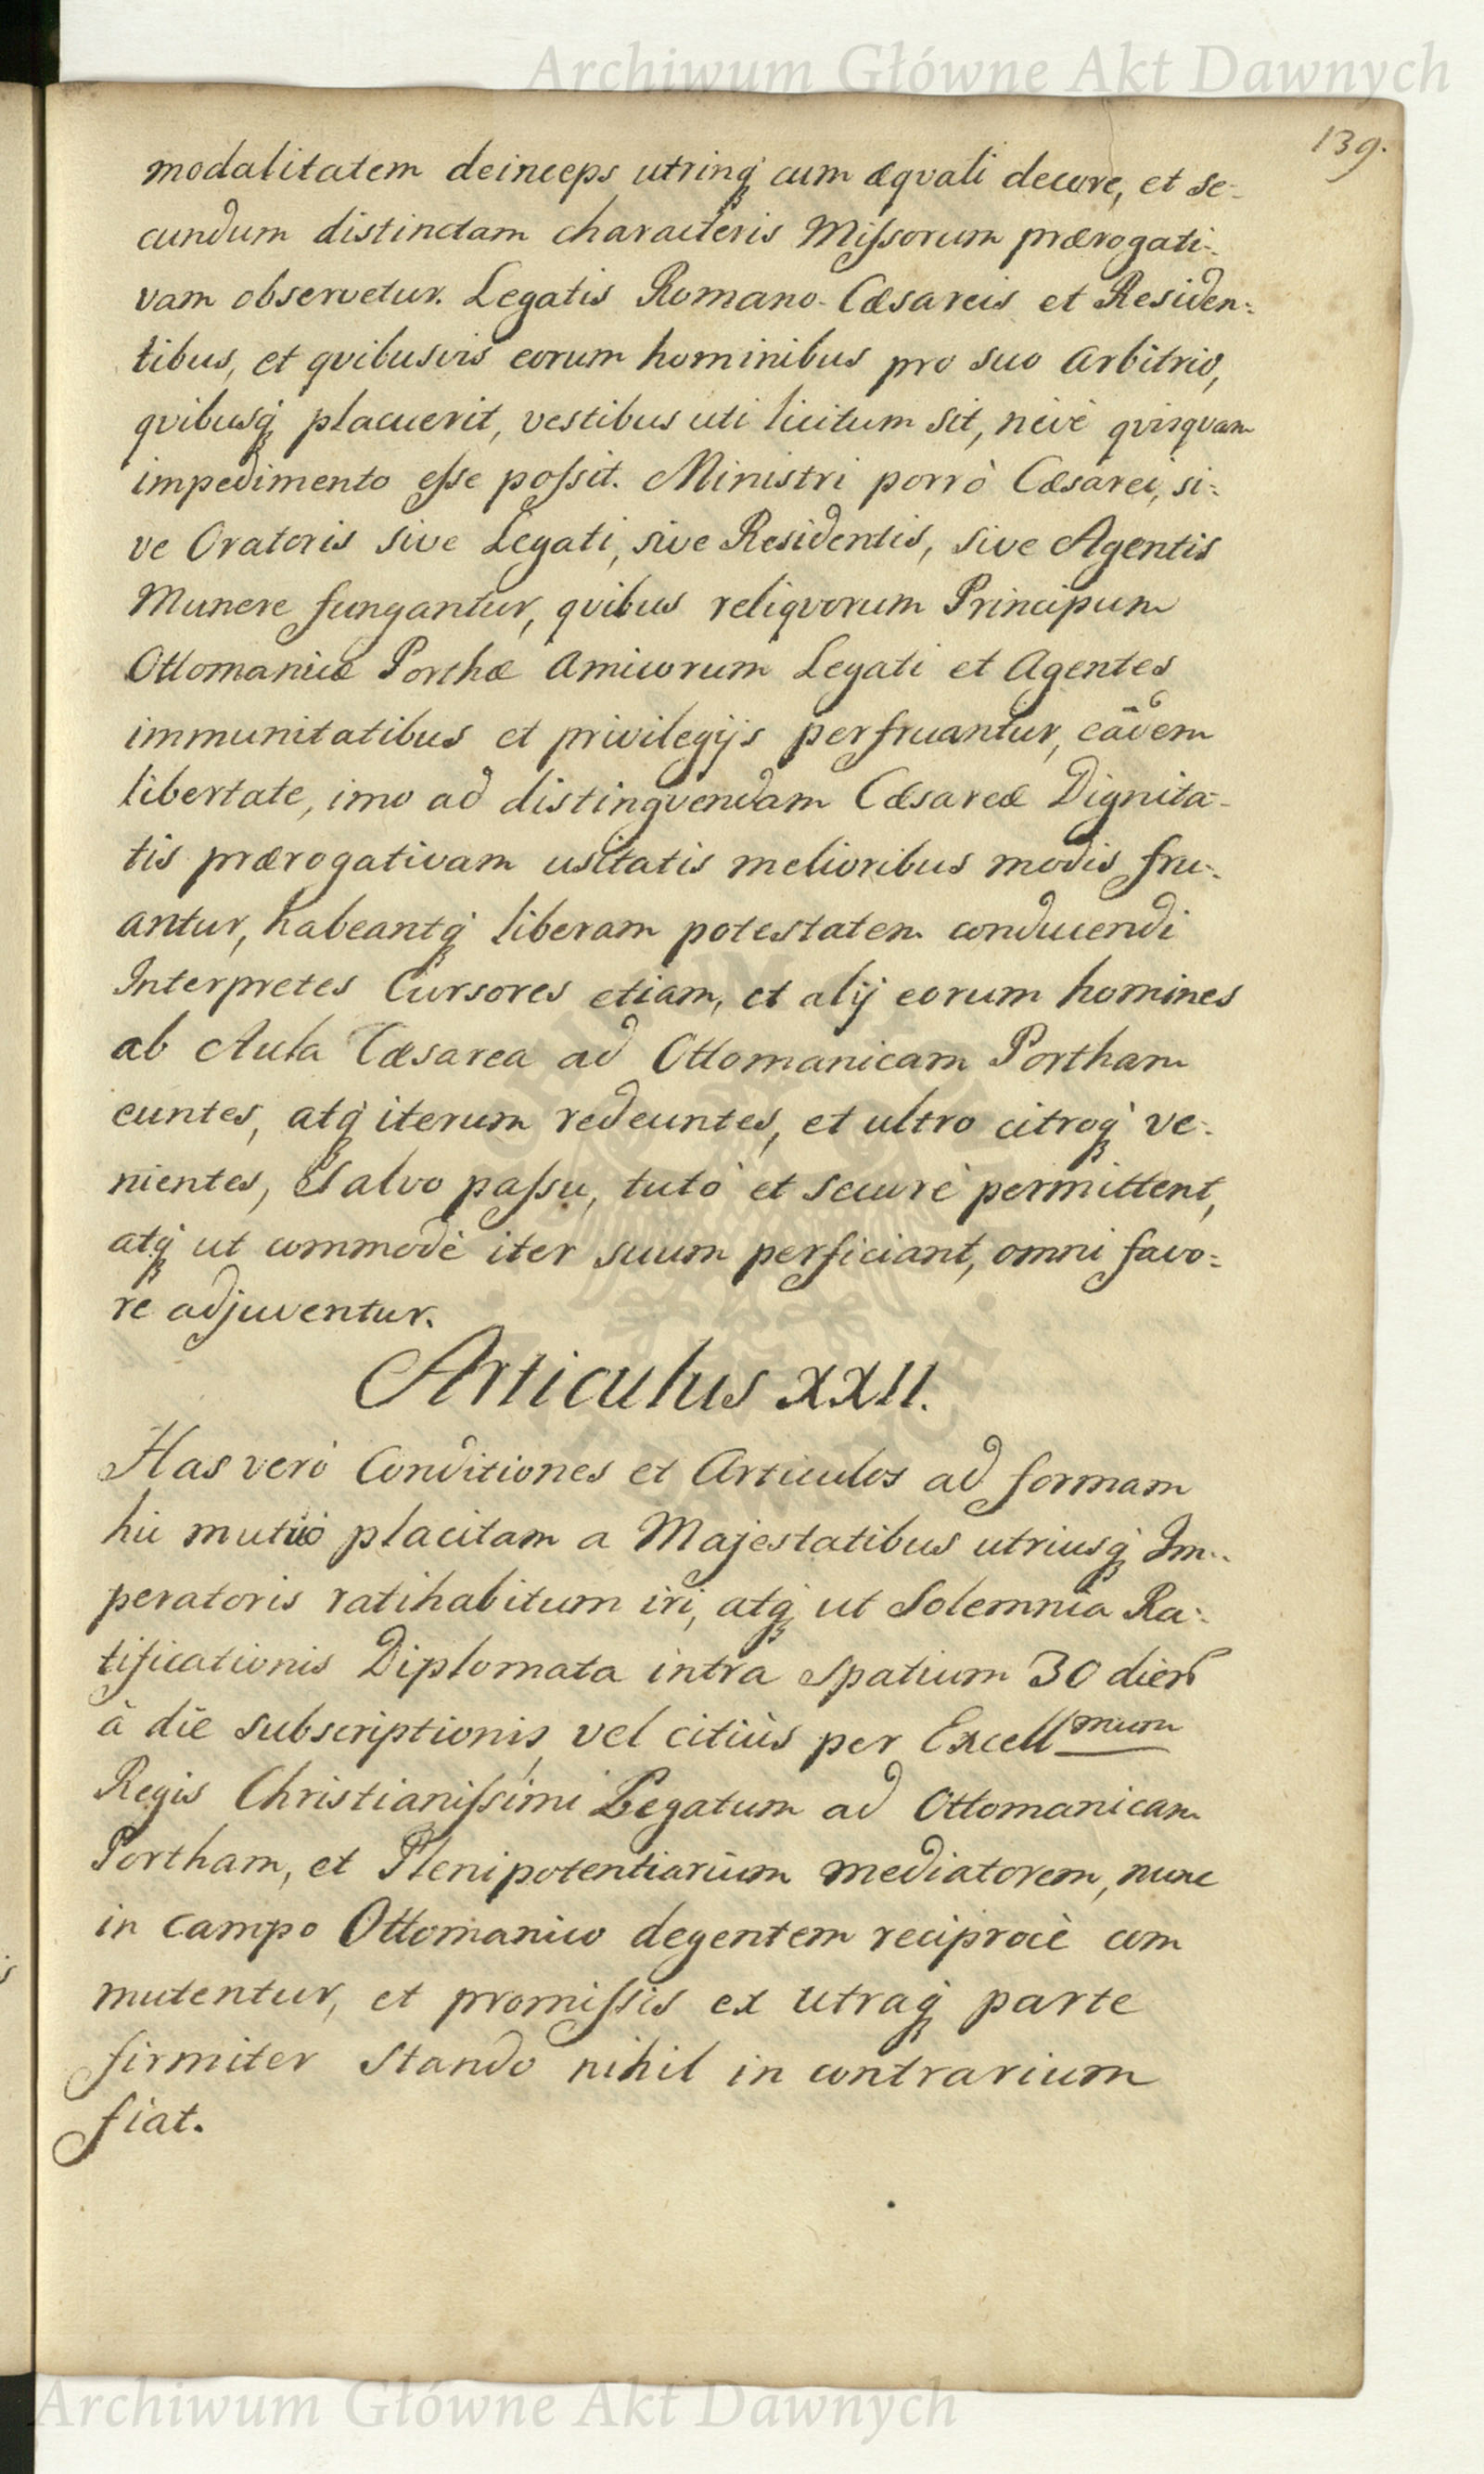 Archiwum Główne Akt Dawnych
139.
modalitatem deinceps utrinq́ cum æquali decore, et se-
cundum distinctam characteris Missorum prærogati-
vam observetur. Legatis Romano-Cæsareis et Residen-
tibus, et quibusvis eorum hominibus pro suo arbitrio,
quibusq́ placuerit, vestibus uti licitum sit, nevè quisquam
impedimento esse possit. Ministri porrò Cæsarei, si-
ve Oratoris sive Legati, sive Residentis, sive Agentis
Munere fungantur, quibus reliquorum Principum
Ottomanicæ Porthæ Amicorum Legati et Agentes
immunitatibus et privilegijs perfruantur, eâdem
libertate, imo ad distinguendam Cæsareæ Dignita-
tis prærogativam usitatis melioribus modis fru-
antur, habeantq́ liberam potestatem conducendi
Interpretes Cursores etiam, et alij eorum homines
ab Aula Cæsarea ad Ottomanicam Portham
euntes, atq́ iterum redeuntes, et ultro citroq́ ve-
nientes, Salvo passu, tutò et securè permittent,
atq́ ut commodè iter suum perficiant, omni favo-
re adjuventur.
Articulus XXII.
Has verò Conditiones et Articulos ad formam
hic mutuò placitam a Majestatibus utriusq́ Im-
peratoris ratihabitum iri, atq́ ut Solemnia Ra-
tificationis Diplomata intra Spatium 30 dier̃
à die subscriptionis, vel citiùs per Excell mum
Regis Christianissimi Legatum ad Ottomanicam
Portham, et Plenipotentiarium mediatorem, nunc
in campo Ottomanico degentem reciprocè com
mutentur, et promissis ex utraq́ parte
firmiter Stando nihil in contrarium
fiat.
Archiwum Główne Akt Dawnych